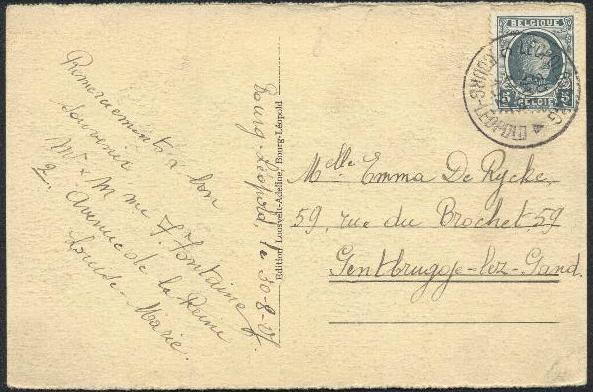 Remerciements & bon
souvenir
Mr & Mme F. Fontaine
2, Avenue de la Reine
Marie.
Bourg-Léopold, le 30-8-
Edition Loosvelt-Adeline, Bourg-Léopold
BELGIQUE
5 5
BELGIE
BOURG-LEOPOLD
Melle Emma De Rycke
59, rue du Brochet, 59
Gentbrugge-lez-Gand.